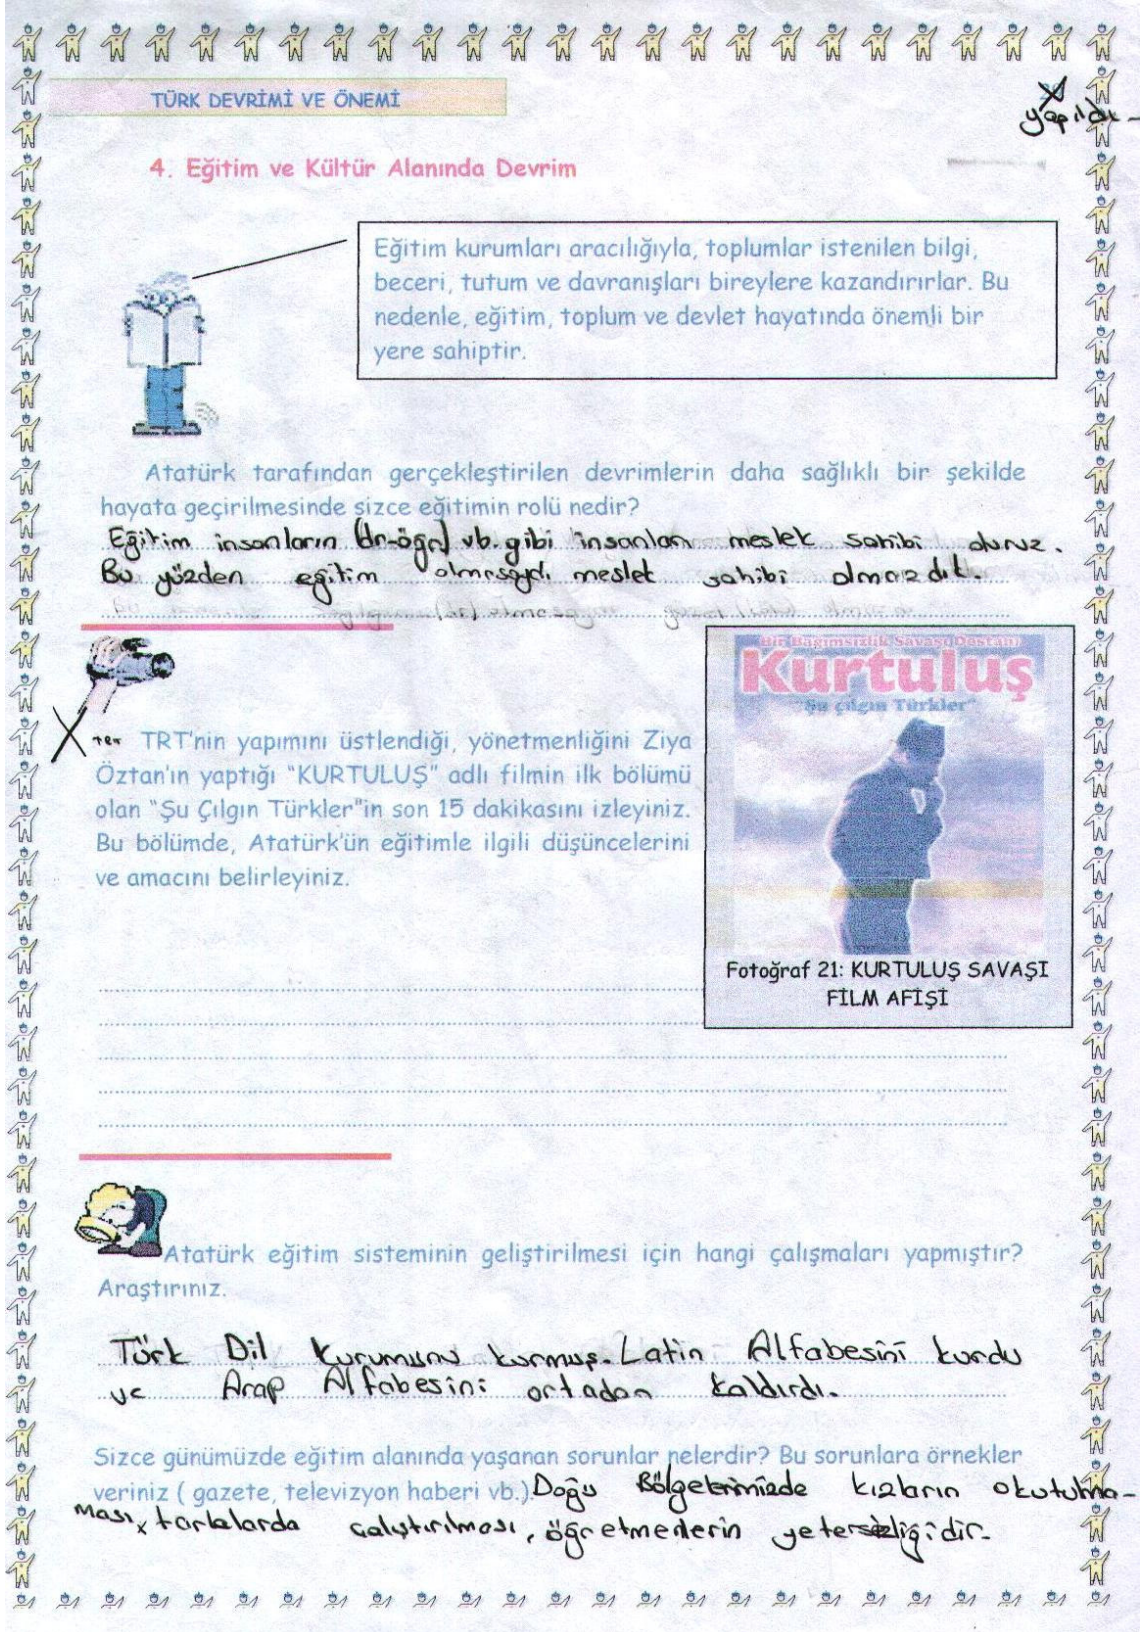 TÜRK DEVRİMİ VE ÖNEMİ
yapıldı-
4. Eğitim ve Kültür Alanında Devrim
Eğitim kurumları aracılığıyla, toplumlar istenilen bilgi,
beceri, tutum ve davranışları bireylere kazandırırlar. Bu
nedenle, eğitim, toplum ve devlet hayatında önemli bir
yere sahiptir.
Atatürk tarafından gerçekleştirilen devrimlerin daha sağlıklı bir şekilde
hayata geçirilmesinde sizce eğitimin rolü nedir?
Eğitim insanların (dr-öğr) vb. gibi insanları meslek sahibi oluruz.
Bu yüzden eğitim olmasaydı meslek sahibi olmazdık.
Bir Bağımsızlık Savaşı Destanı
Kurtuluş
"Şu çılgın Türkler"
TRT'nin yapımını üstlendiği, yönetmenliğini Ziya
Öztan'ın yaptığı "KURTULUŞ" adlı filmin ilk bölümü
olan "Şu Çılgın Türkler"in son 15 dakikasını izleyiniz.
Bu bölümde, Atatürk'ün eğitimle ilgili düşüncelerini
ve amacını belirleyiniz.
Fotoğraf 21: KURTULUŞ SAVAŞI
FİLM AFİŞİ
Atatürk eğitim sisteminin geliştirilmesi için hangi çalışmaları yapmıştır?
Araştırınız.
Türk Dil Kurumunu kurmuş. Latin Alfabesini kurdu
ve Arap Alfabesini ortadan kaldırdı.
Sizce günümüzde eğitim alanında yaşanan sorunlar nelerdir? Bu sorunlara örnekler
veriniz ( gazete, televizyon haberi vb.). Doğu Bölgelerimizde kızların okutulma-
ması, tarlalarda çalıştırılması, öğretmenlerin yetersizliğidir.